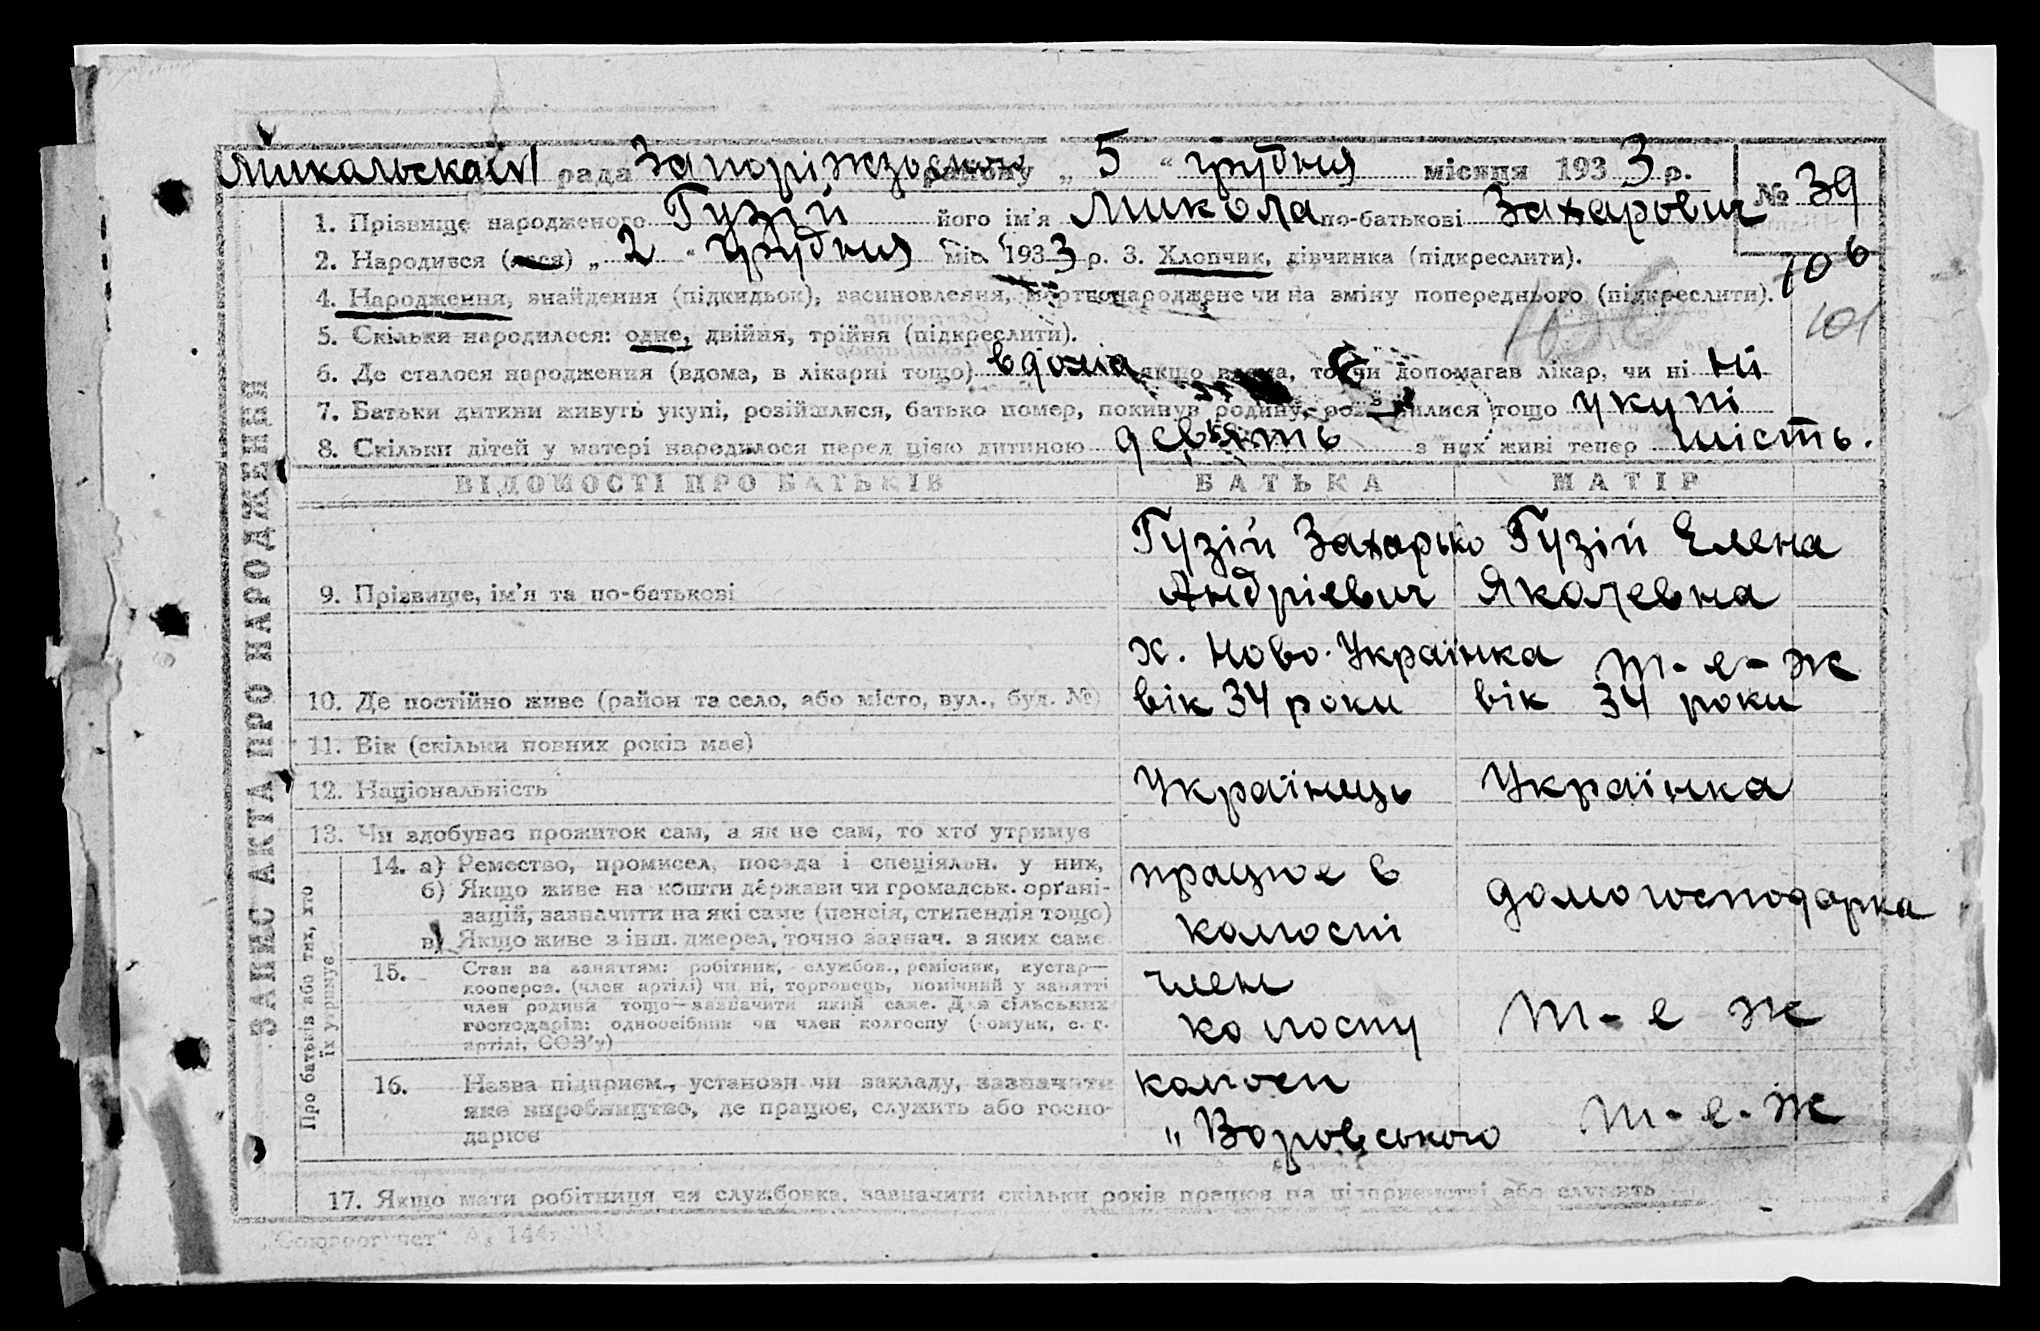 Михальскай рада Запоріжзького району „ 5 “ грудня місяця 1933 р. № 39
1. Прізвище народженого Гузій його ім'я Микола по-батькові Захарович
2. Народився (лася) „ 2 “ грудня міс. 1933 р. 3. Хлопчик, дівчинка (підкреслити).
106
4. Народження, знайдення (підкидьок), засиновлення, мертвонароджене чи на зміну попереднього (підкреслити).
106 101
5. Скільки народилося: одне, двійня, трійня (підкреслити).
6. Де сталося народження (вдома, в лікарні тощо) вдома якщо вдома, то чи допомагав лікар, чи ні ні
7. Батьки дитини живуть укупі, розійшлися, батько помер, покинув родину, тощо укупі
8. Скільки дітей у матері народилося перед цією дитиною девять з них живі тепер шість.
ЗАПИС АКТА ПРО НАРОДЖЕННЯ
ВІДОМОСТІ ПРО БАТЬКІВ БАТЬКА МАТІР
9. Прізвище, ім'я та по-батькові
Гузій Захарько
Андріевич
Гузій Елена
Яколевна
10. Де постійно живе (район та село, або місто, вул., буд. №)
х. Ново-Украінка
т-е-ж
11. Вік (скільки повних років має)
вік 34 роки
вік 34 роки
12. Національність
Українець
Українка
13. Чи здобуває прожиток сам, а як не сам, то хто утримує
Про батьків або тих, хто
їх утримує
14. а) Ремество, промисел, посада і спеціяльн. у них,
б) Якщо живе на кошти держави чи громадськ. орґані-
зацій, зазначити на які саме (пенсія, стипендія тощо)
в) Якщо живе з інш. джерел, точно зазнач. з яких саме
працює в
колгоспі
домогосподарка
15. Стан за заняттям: робітник, службов., ремісник, кустар—
кооперов. (член артілі) чи ні, торговець, помічний у занятті
член родини тощо—зазначити який саме. Для сільських
господарів: одноосібник чи член колгоспу (комуни, с.-г.
артілі, СОЗ'у)
член
колгоспу
т-е ж
16. Назва підприєм., установи чи закладу, зазначити
яке виробництво, де працює, служить або госпо-
дарює
колгосп
„ Воровського
т-е-ж
17. Якщо мати робітниця чи службовка, зазначити скільки років працює на підприємстві або служить